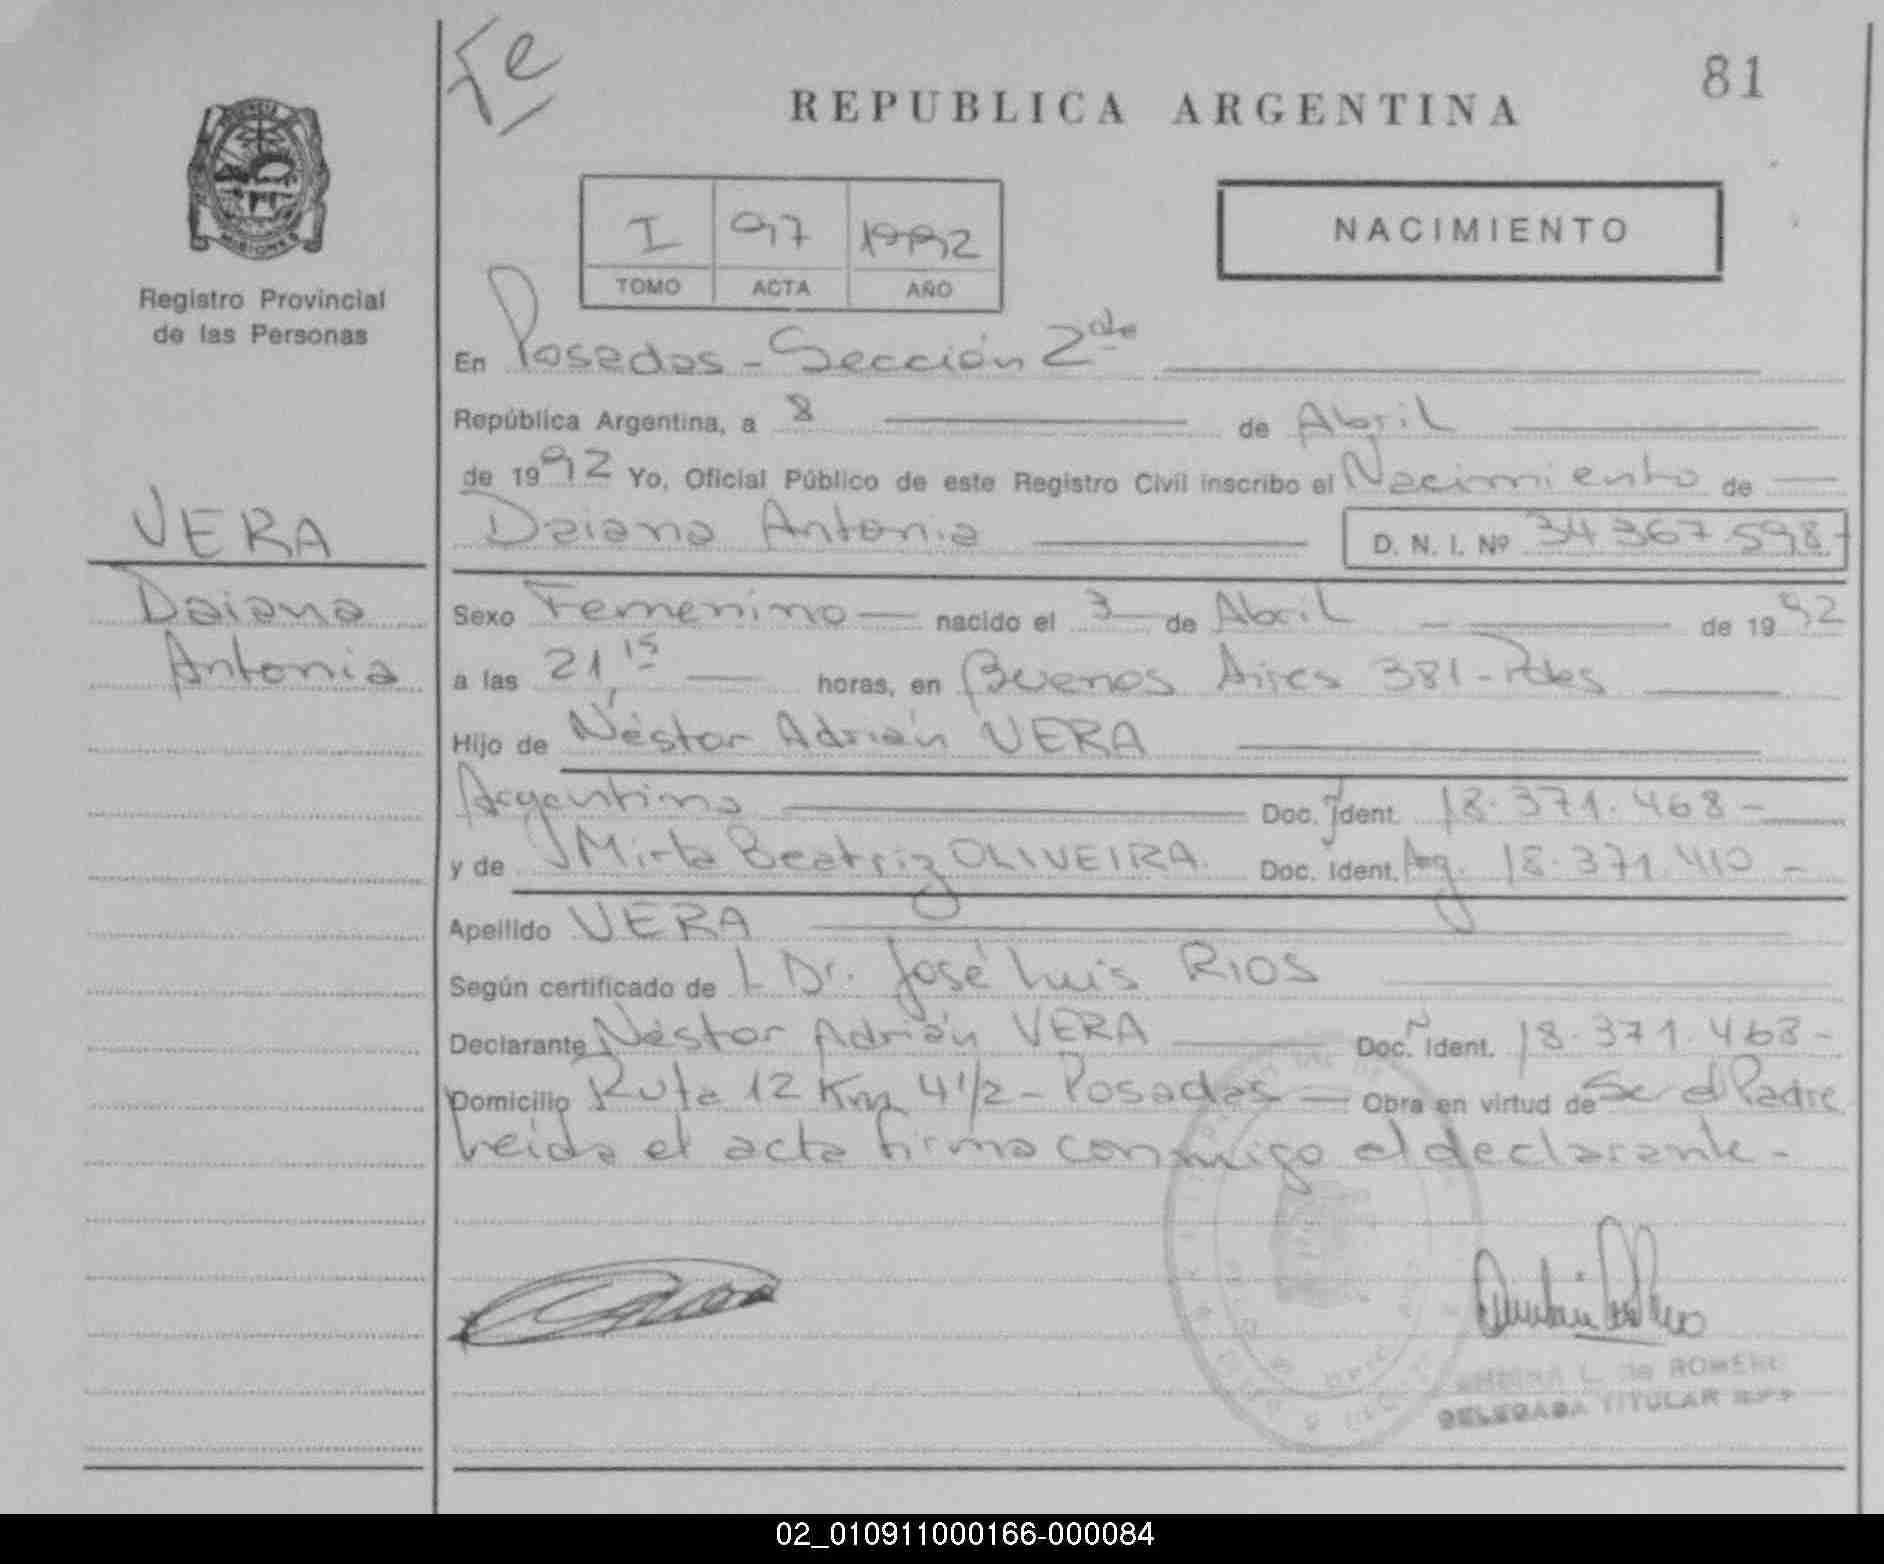 Te
81
REPUBLICA ARGENTINA
I 97 1992
TOMO ACTA AÑO
NACIMIENTO
MISIONES
Registro Provincial
de las Personas
En Posadas - Sección 2da
República Argentina, a 8 de Abril
de 1992 Yo, Oficial Público de este Registro Civil inscribo el Nacimiento de
Daiana Antonia D. N. I. Nº 34.367.598-
VERA
Daiana
Antonia
Sexo Femenino nacido el 3 de Abril de 1992
a las 21,15 horas, en Buenos Aires 381 - Pdas
Hijo de Néstor Adrián VERA
Argentino Doc. Ident. 18.371.468-
y de Mirta Beatriz OLIVEIRA Doc. Ident. Arg. 18.371.410-
Apellido VERA
Según certificado de Dr. José Luis RIOS
Declarante Néstor Adrián VERA Doc. Ident. 18.371.468-
Domicilio Ruta 12 Km 4 1/2 - Posadas Obra en virtud de Ser el Padre
Leida el acta firma conmigo el declarante -
L. de ROMERO
DELEGADA TITULAR R.P.P
02_010911000166-000084